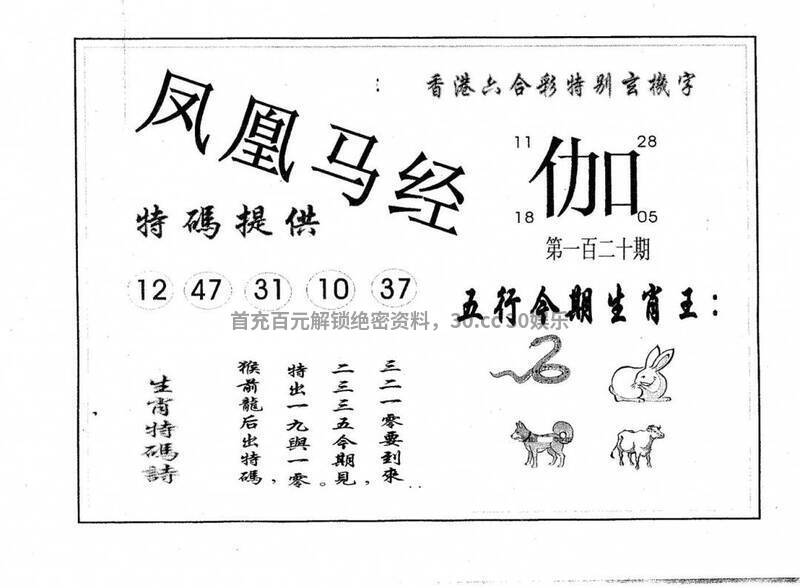 香港六合彩特别玄機字
凤凰马经
11 28
伽
18 05
特碼提供
第一百二十期
12 47 31 10 37
五行今期生肖王：
首充百元解锁绝密资料，30.cc 30娱乐
三二一零要到來
二三三五今期見，
特出一九與一零。
猴前龍后出特碼，
生肖特碼詩